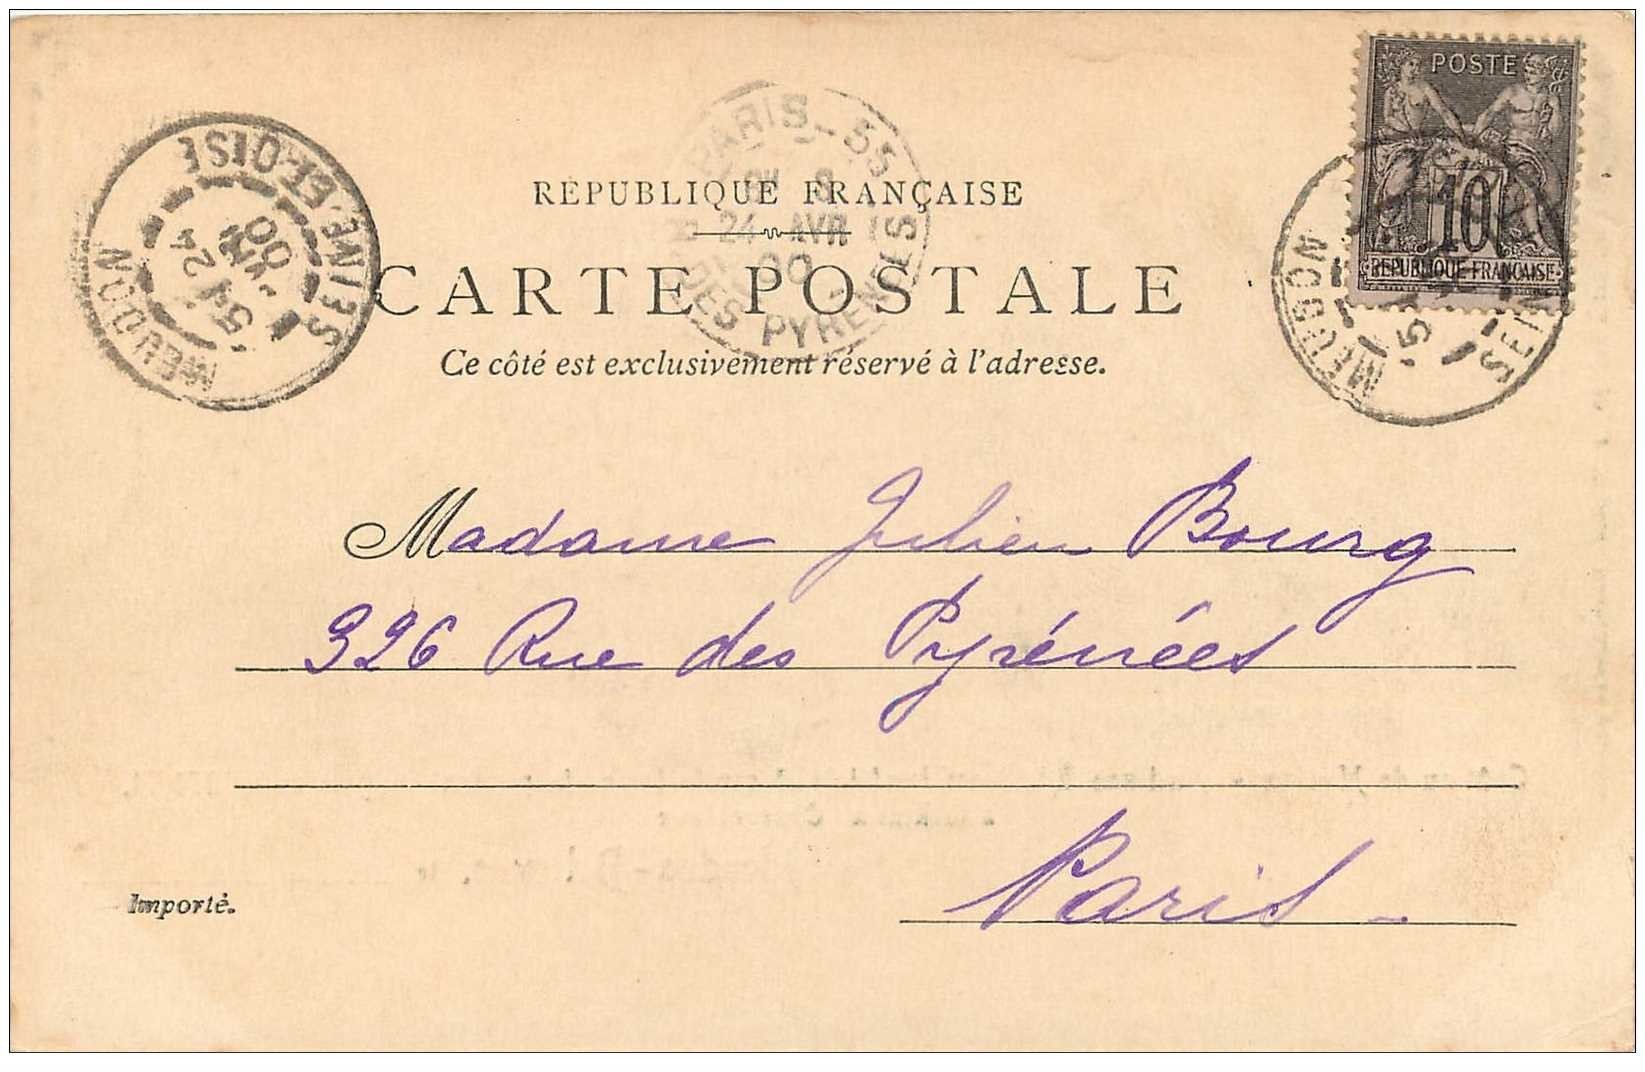 POSTE
10
REPUBLIQUE FRANÇAISE
PARIS-55
8
24 AVR
00
DES PYRÉNÉES
SEINE-ET-OISE
24
00
MEUDON
MEUDON
SEIN
RÉPUBLIQUE FRANÇAISE
CARTE POSTALE
Ce côté est exclusivement réservé à l'adresse.
Madame Julien Bourg
326 Rue des Pyrénées
Paris -
Importé.